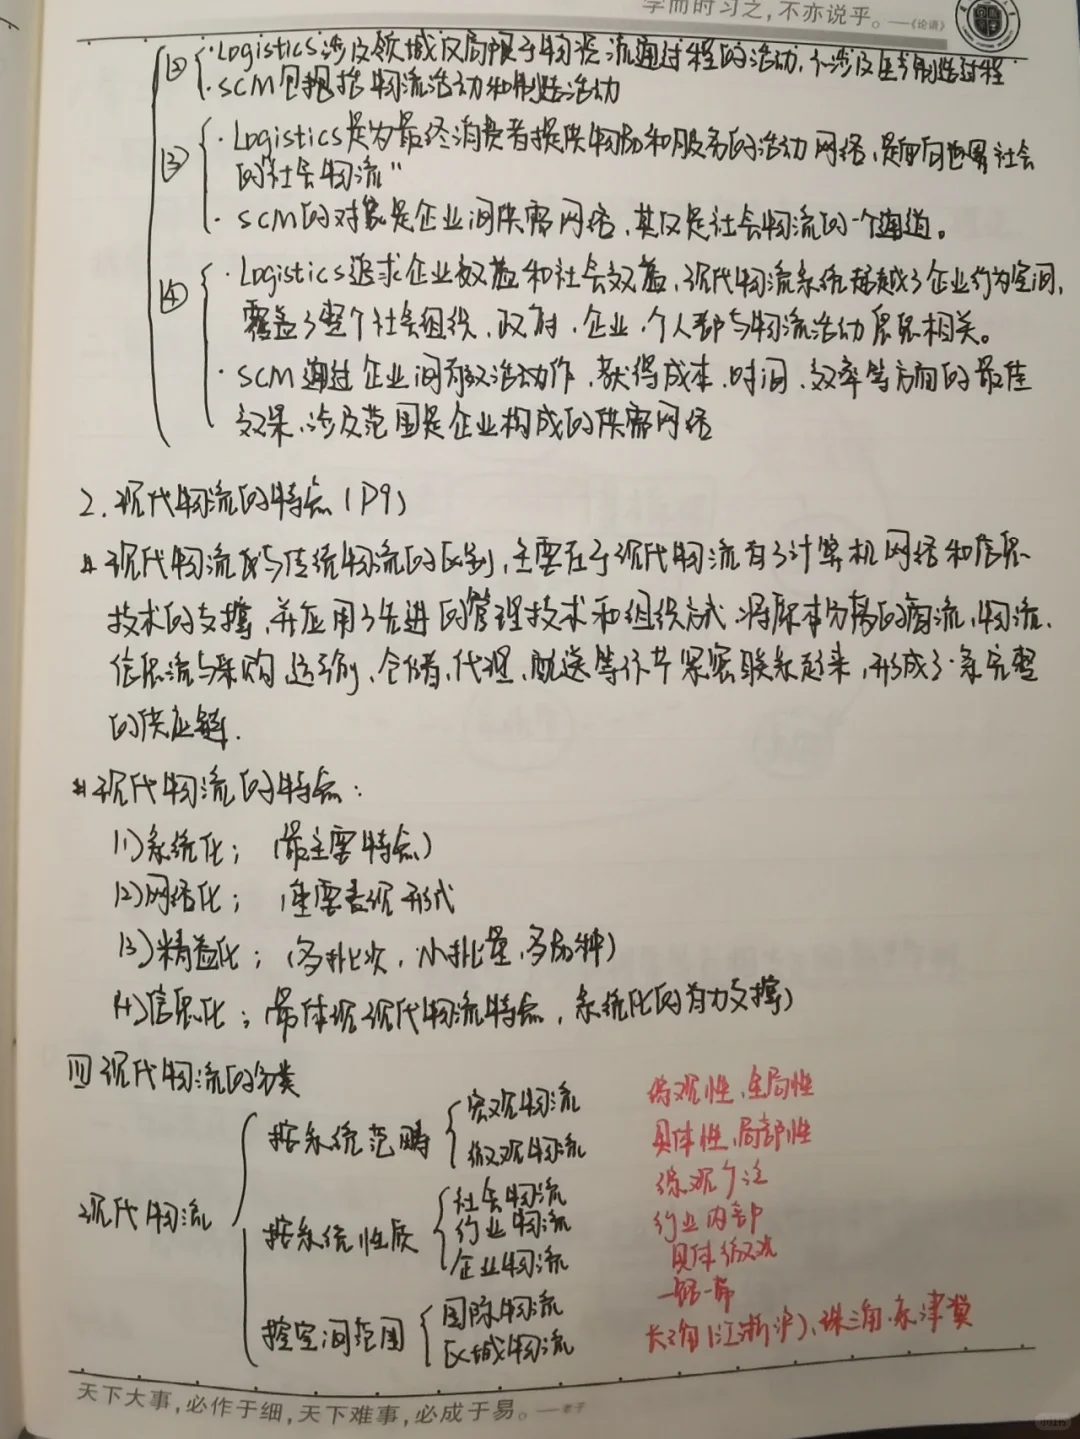 学而时习之,不亦说乎。——《论语》
② · Logistics涉及领域仅局限于物资流通过程的活动,不涉及生产制造过程
· SCM包括物流活动和制造活动
③ · Logistics是为最终消费者提供物品和服务的活动网络,是面向世界社会
的"社会物流"
· SCM的对象是企业间供需网络,其仅是社会物流的一个通道。
④ · Logistics追求企业效益和社会效益,现代物流系统超越了企业行为空间,
覆盖了整个社会组织,政府,企业,个人都与物流活动息息相关。
· SCM通过企业间有效活动作,获得成本,时间,效率等方面的最佳
效果,涉及范围是企业构成的供需网络
2.现代物流的特点(P9)
现代物流与传统物流的区别,主要在于现代物流有了计算机网络和信息
技术的支撑,并应用了先进的管理技术和组织方式,将原本分离的商流,物流,
信息流与采购,运输,仓储,代理,配送等环节紧密联系起来,形成了一条完整
的供应链.
现代物流的特点:
(1)系统化; (最主要特点)
(2)网络化; (重要表现形式
(3)精益化; (多批次,小批量,多品种)
(4)信息化; (最体现现代物流特点,系统化的有力支撑)
四 现代物流的分类
现代物流
按系统范畴 宏观物流 综观性,全局性
微观物流 具体性,局部性
按系统性质 社会物流 综观
行业物流 行业内部
企业物流 具体微观
按空间范围 国际物流 一带一路
区域物流 长三角(江浙沪),珠三角,京津冀
天下大事,必作于细,天下难事,必成于易。——老子